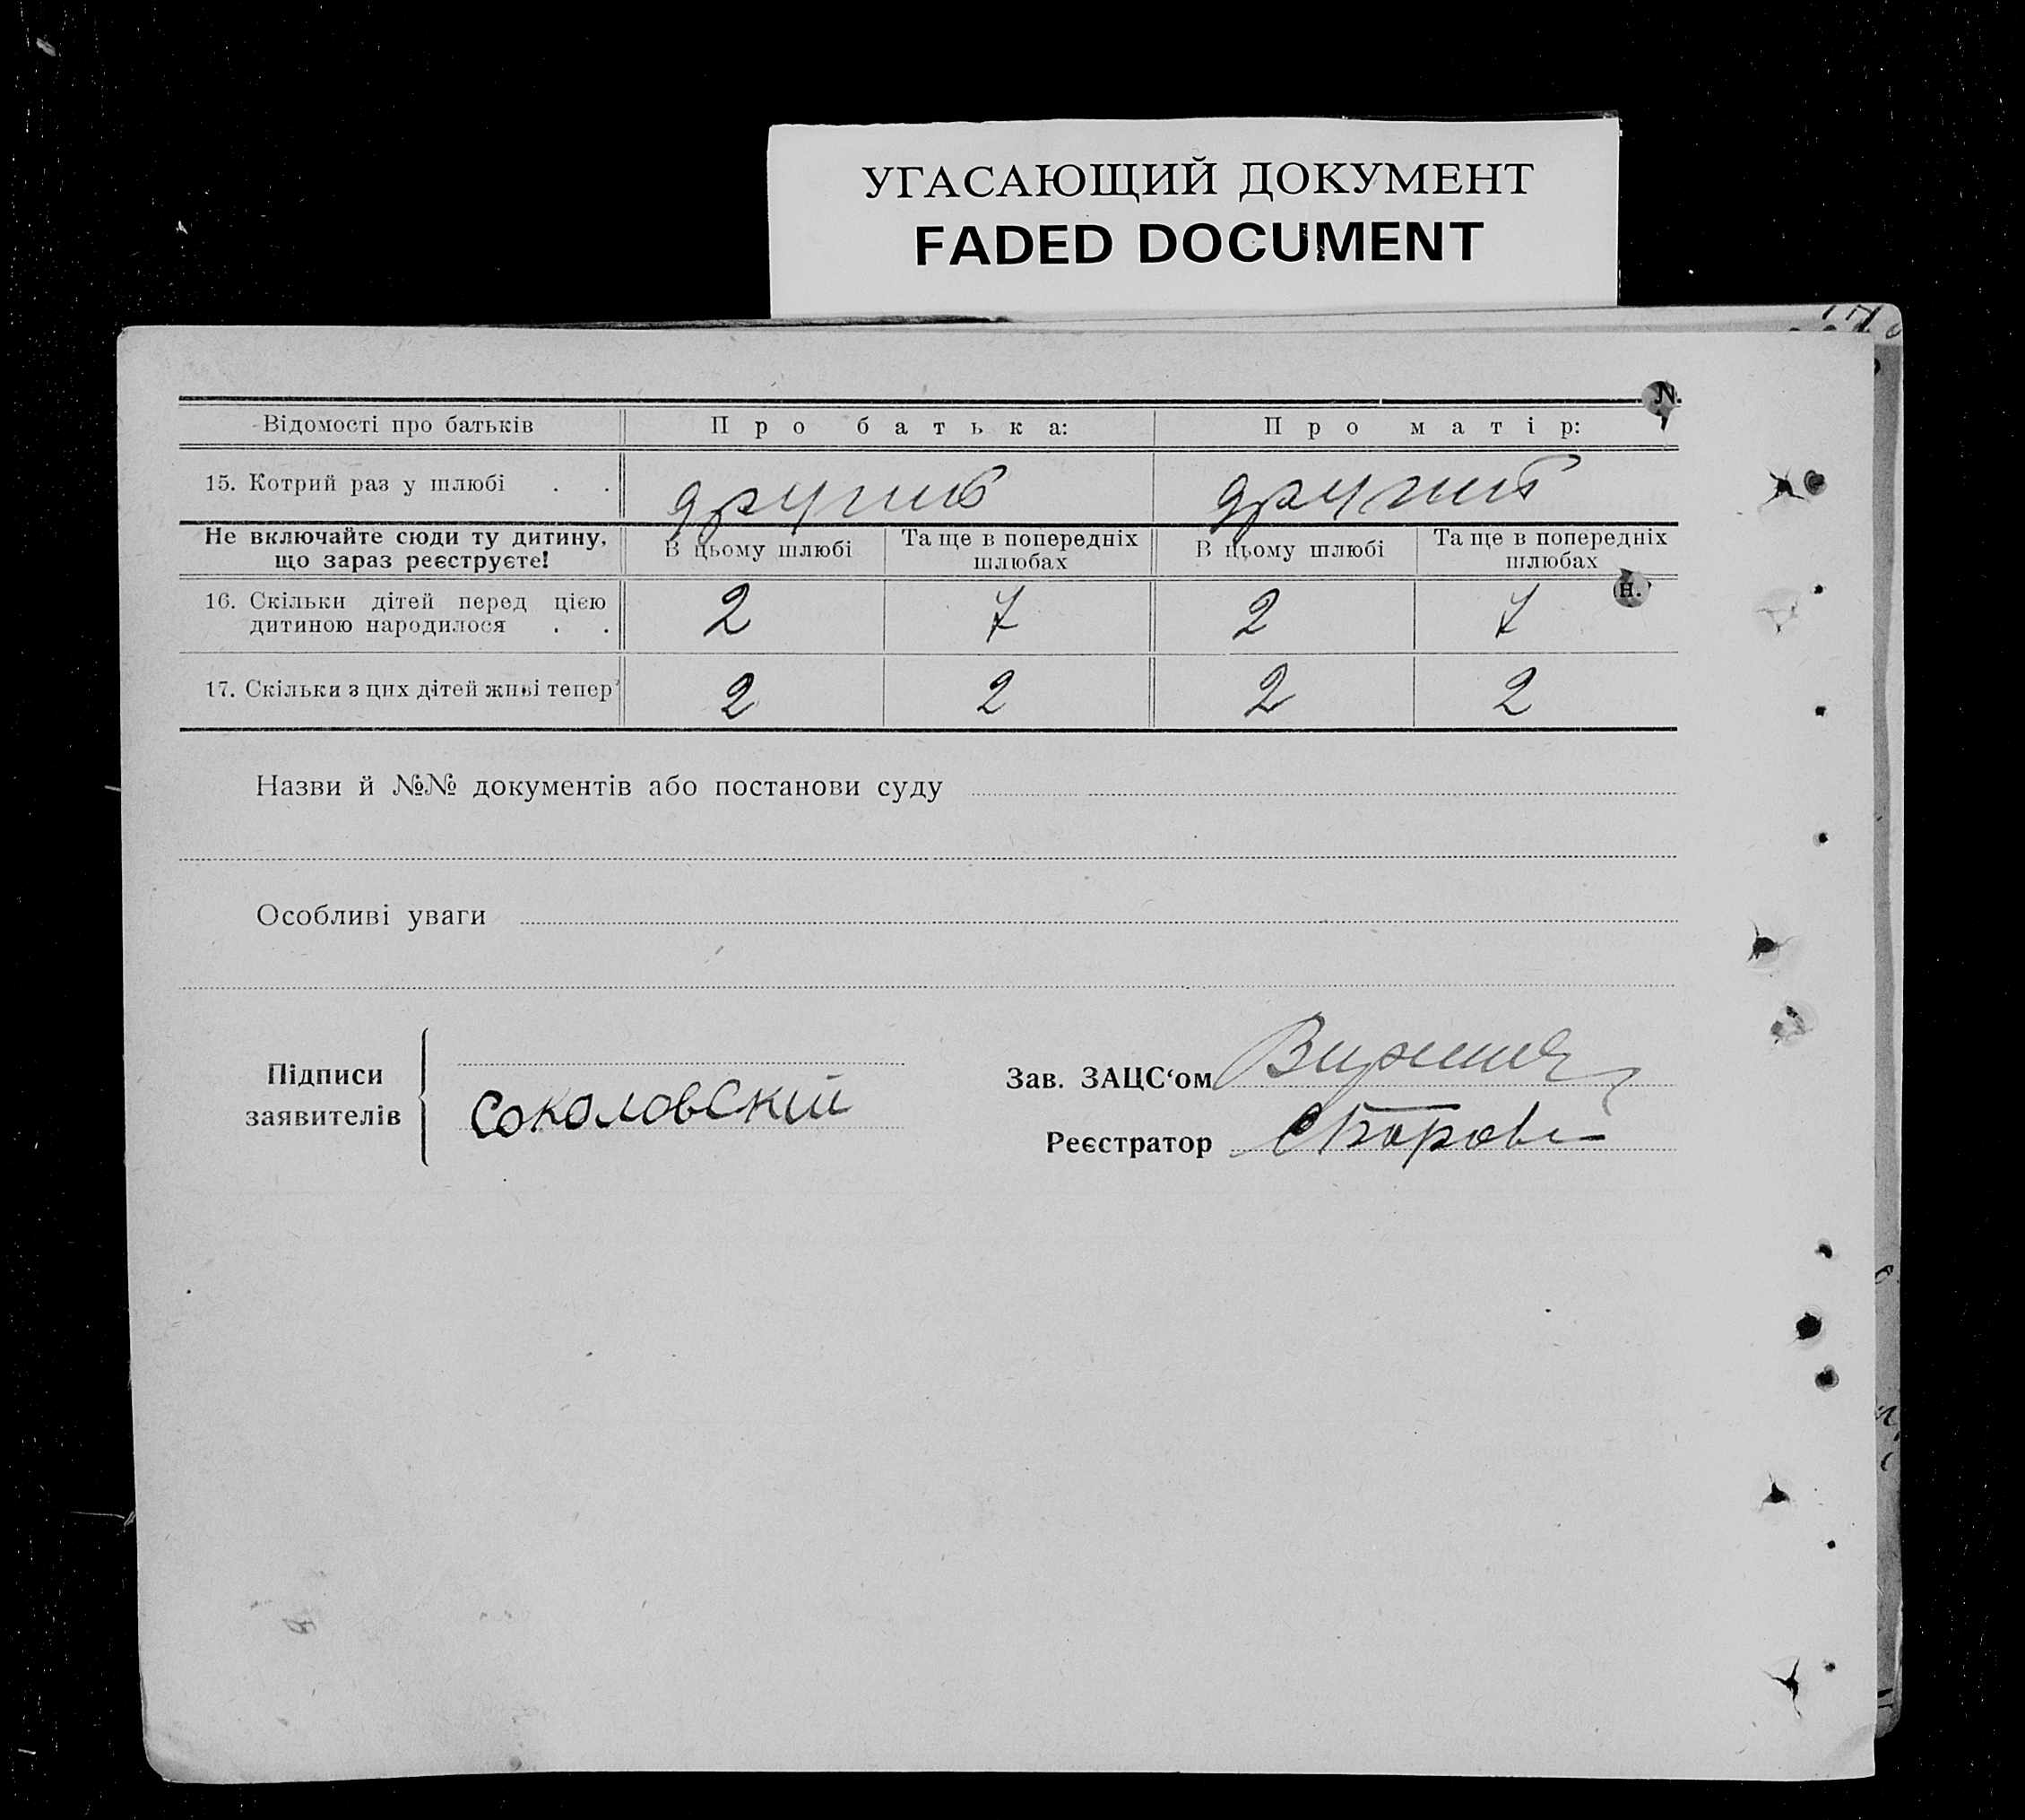 УГАСАЮЩИЙ ДОКУМЕНТ
FADED DOCUMENT
Відомості про батьків
Про батька:
Про матір:
15. Котрий раз у шлюбі . .
другий
другий
Не включайте сюди ту дитину,
що зараз реєструєте!
В цьому шлюбі
Та ще в попередніх
шлюбах
В цьому шлюбі
Та ще в попередніх
шлюбах
16. Скільки дітей перед цією
дитиною народилося . .
2
7
2
7
17. Скільки з цих дітей живі тепер
2
2
2
2
Назви й №№ документів або постанови суду
Особливі уваги
Підписи
заявителів
Соколовскій
Зав. ЗАЦС‘ом
Реєстратор